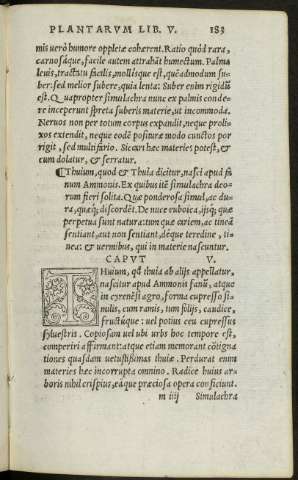 PLANTARVM LIB. V. 183
mis verò humore oppletæ cohærent. Ratio quòd rara,
carnosáque, facile autem attrahit humectum. Palma
leuis, tractatu facilis, mollisque est, quẽadmodum su-
ber: sed melior subere, quia lenta: Suber enim rigidũ
est. Quapropter simulachra nunc ex palmis conde-
re inceperunt spreta suberis materie, ut incommoda.
Neruos non per totum corpus expandit, neque proli-
xos extendit, neque eodẽ posituræ modo cunctos por
rigit, sed multifario. Siccari hæc materies potest, & 
cum dolatur, & serratur.
¶Thuium, quod & Thuia dicitur, nasci apud fa
num Ammonis. Ex quibus itẽ simulachra deo-
rum fieri solita. Quæ ponderosa simul, ac du-
ra, quæq; discordẽt. De nuce euboica, ijsq; quæ
perpetua sunt natura: tum quæ cariem, ac tineã
sentiant, aut non sentiant, déque teredine, ti-
nea: & uermibus, qui in materie nascuntur.
CAPVT V.
THuium, qđ thuia ab alijs appellatur,
nascitur apud Ammonis fanũ, atque
in cyrenẽsi agro, forma cupresso si-
milis, cum ramis, tum folijs, caudice,
fructúque: uel potius ceu cupressus
syluestris. Copiosam uel ubi urbs hoc tempore est,
comperiri affirmant: atque etiam memorant cõtigna
tiones quasdam uetustissimas thuiæ. Perdurat enim
materies hæc incorrupta omnino. Radice huius ar-
boris nihil crispius, eáque præciosa opera conficiunt.
m iiij Simulachra